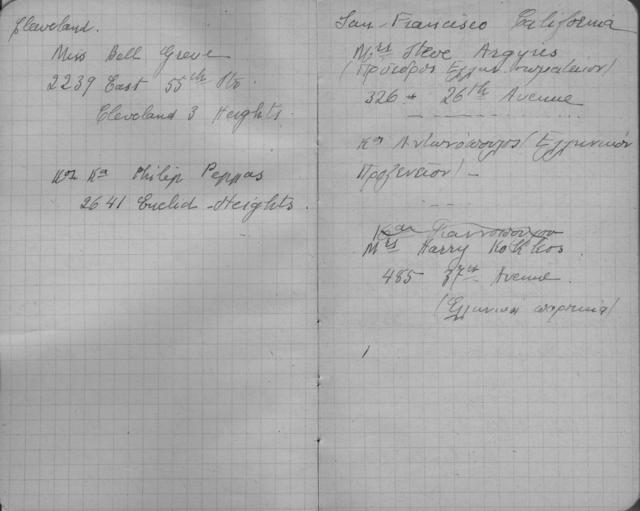 Cleveland.
Miss Bell Greve
2239 East 55th Str.
Cleveland 3 Heights.
Κος Κα Philip Peppas
2641 Euclid-Heights.
San-Francisco California
Mrs Steve Argyris
(Πρόεδρος Ελλην. σωματείου)
326 - 26th Avenue
Κα Αντωνόπουλος (Ελληνικόν
Προξενείον) -
Mrs Harry Kokkos
485 37th Avenue
(Ελληνικά)